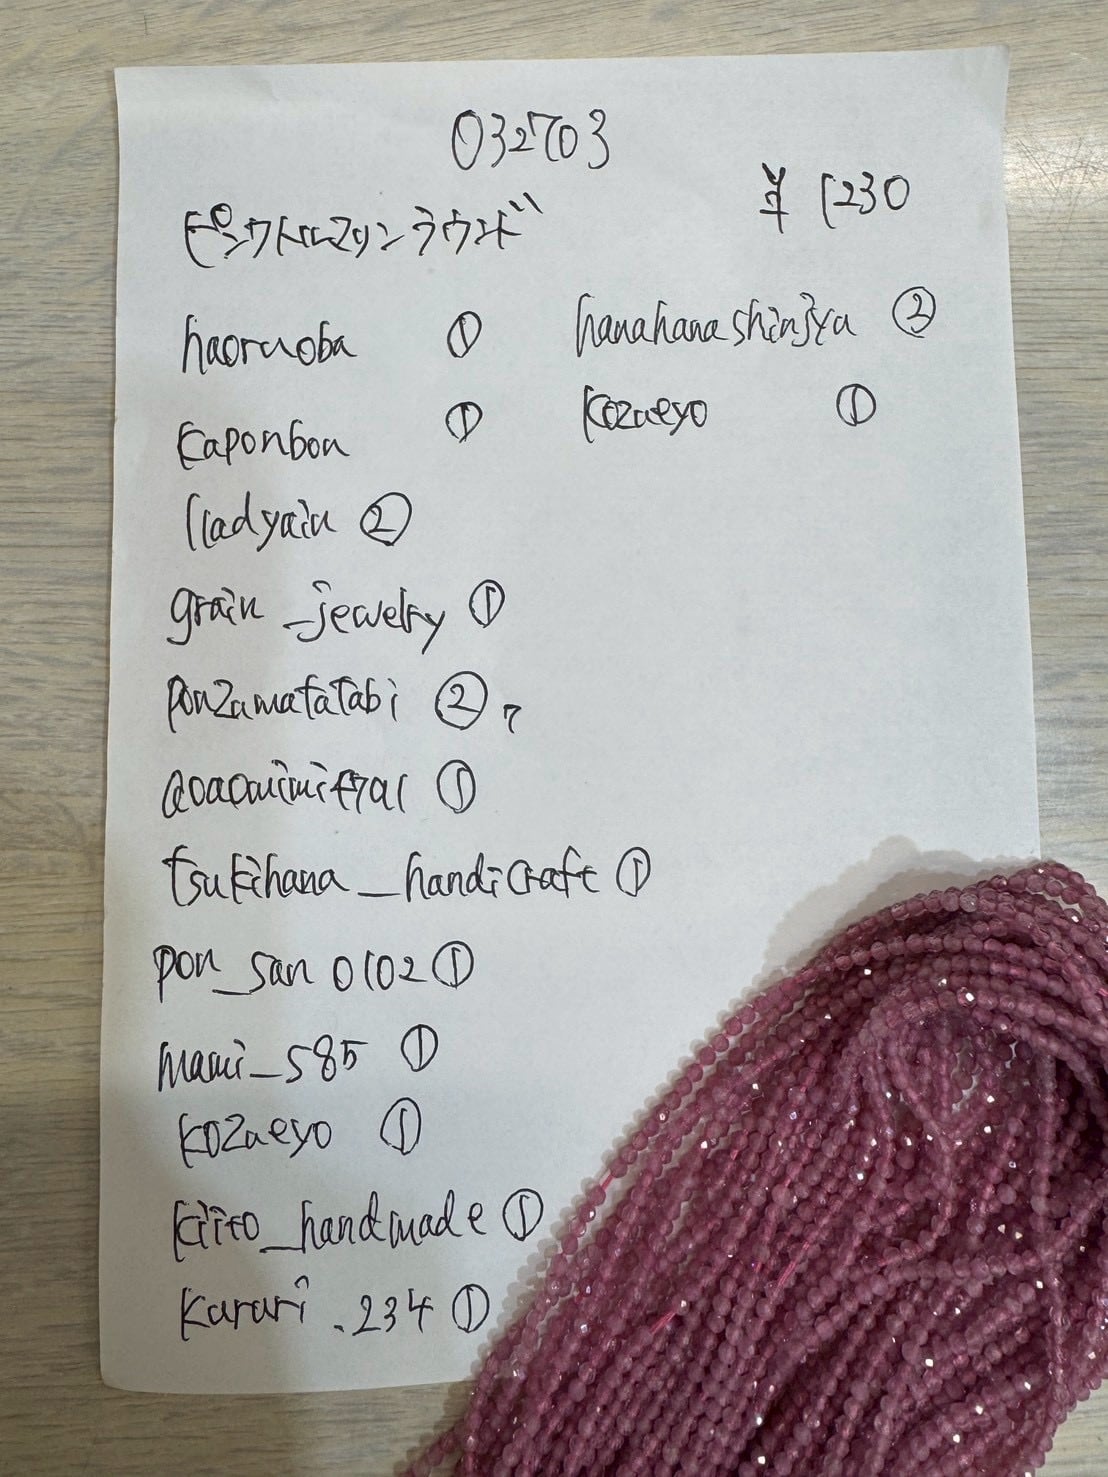 032703
ピンクトルマリンラウンド
¥1230
haoruoba ①
kaponbon ①
lladyain ②
grain_jewelry ①
ponzamatatabi ②
①
tsukihana_handicraft ①
pon_san0102 ①
mami_585 ①
kozaeyo ①
kiito_handmade ①
karari.234 ①
hanahanashinjyu ②
kozaeyo ①